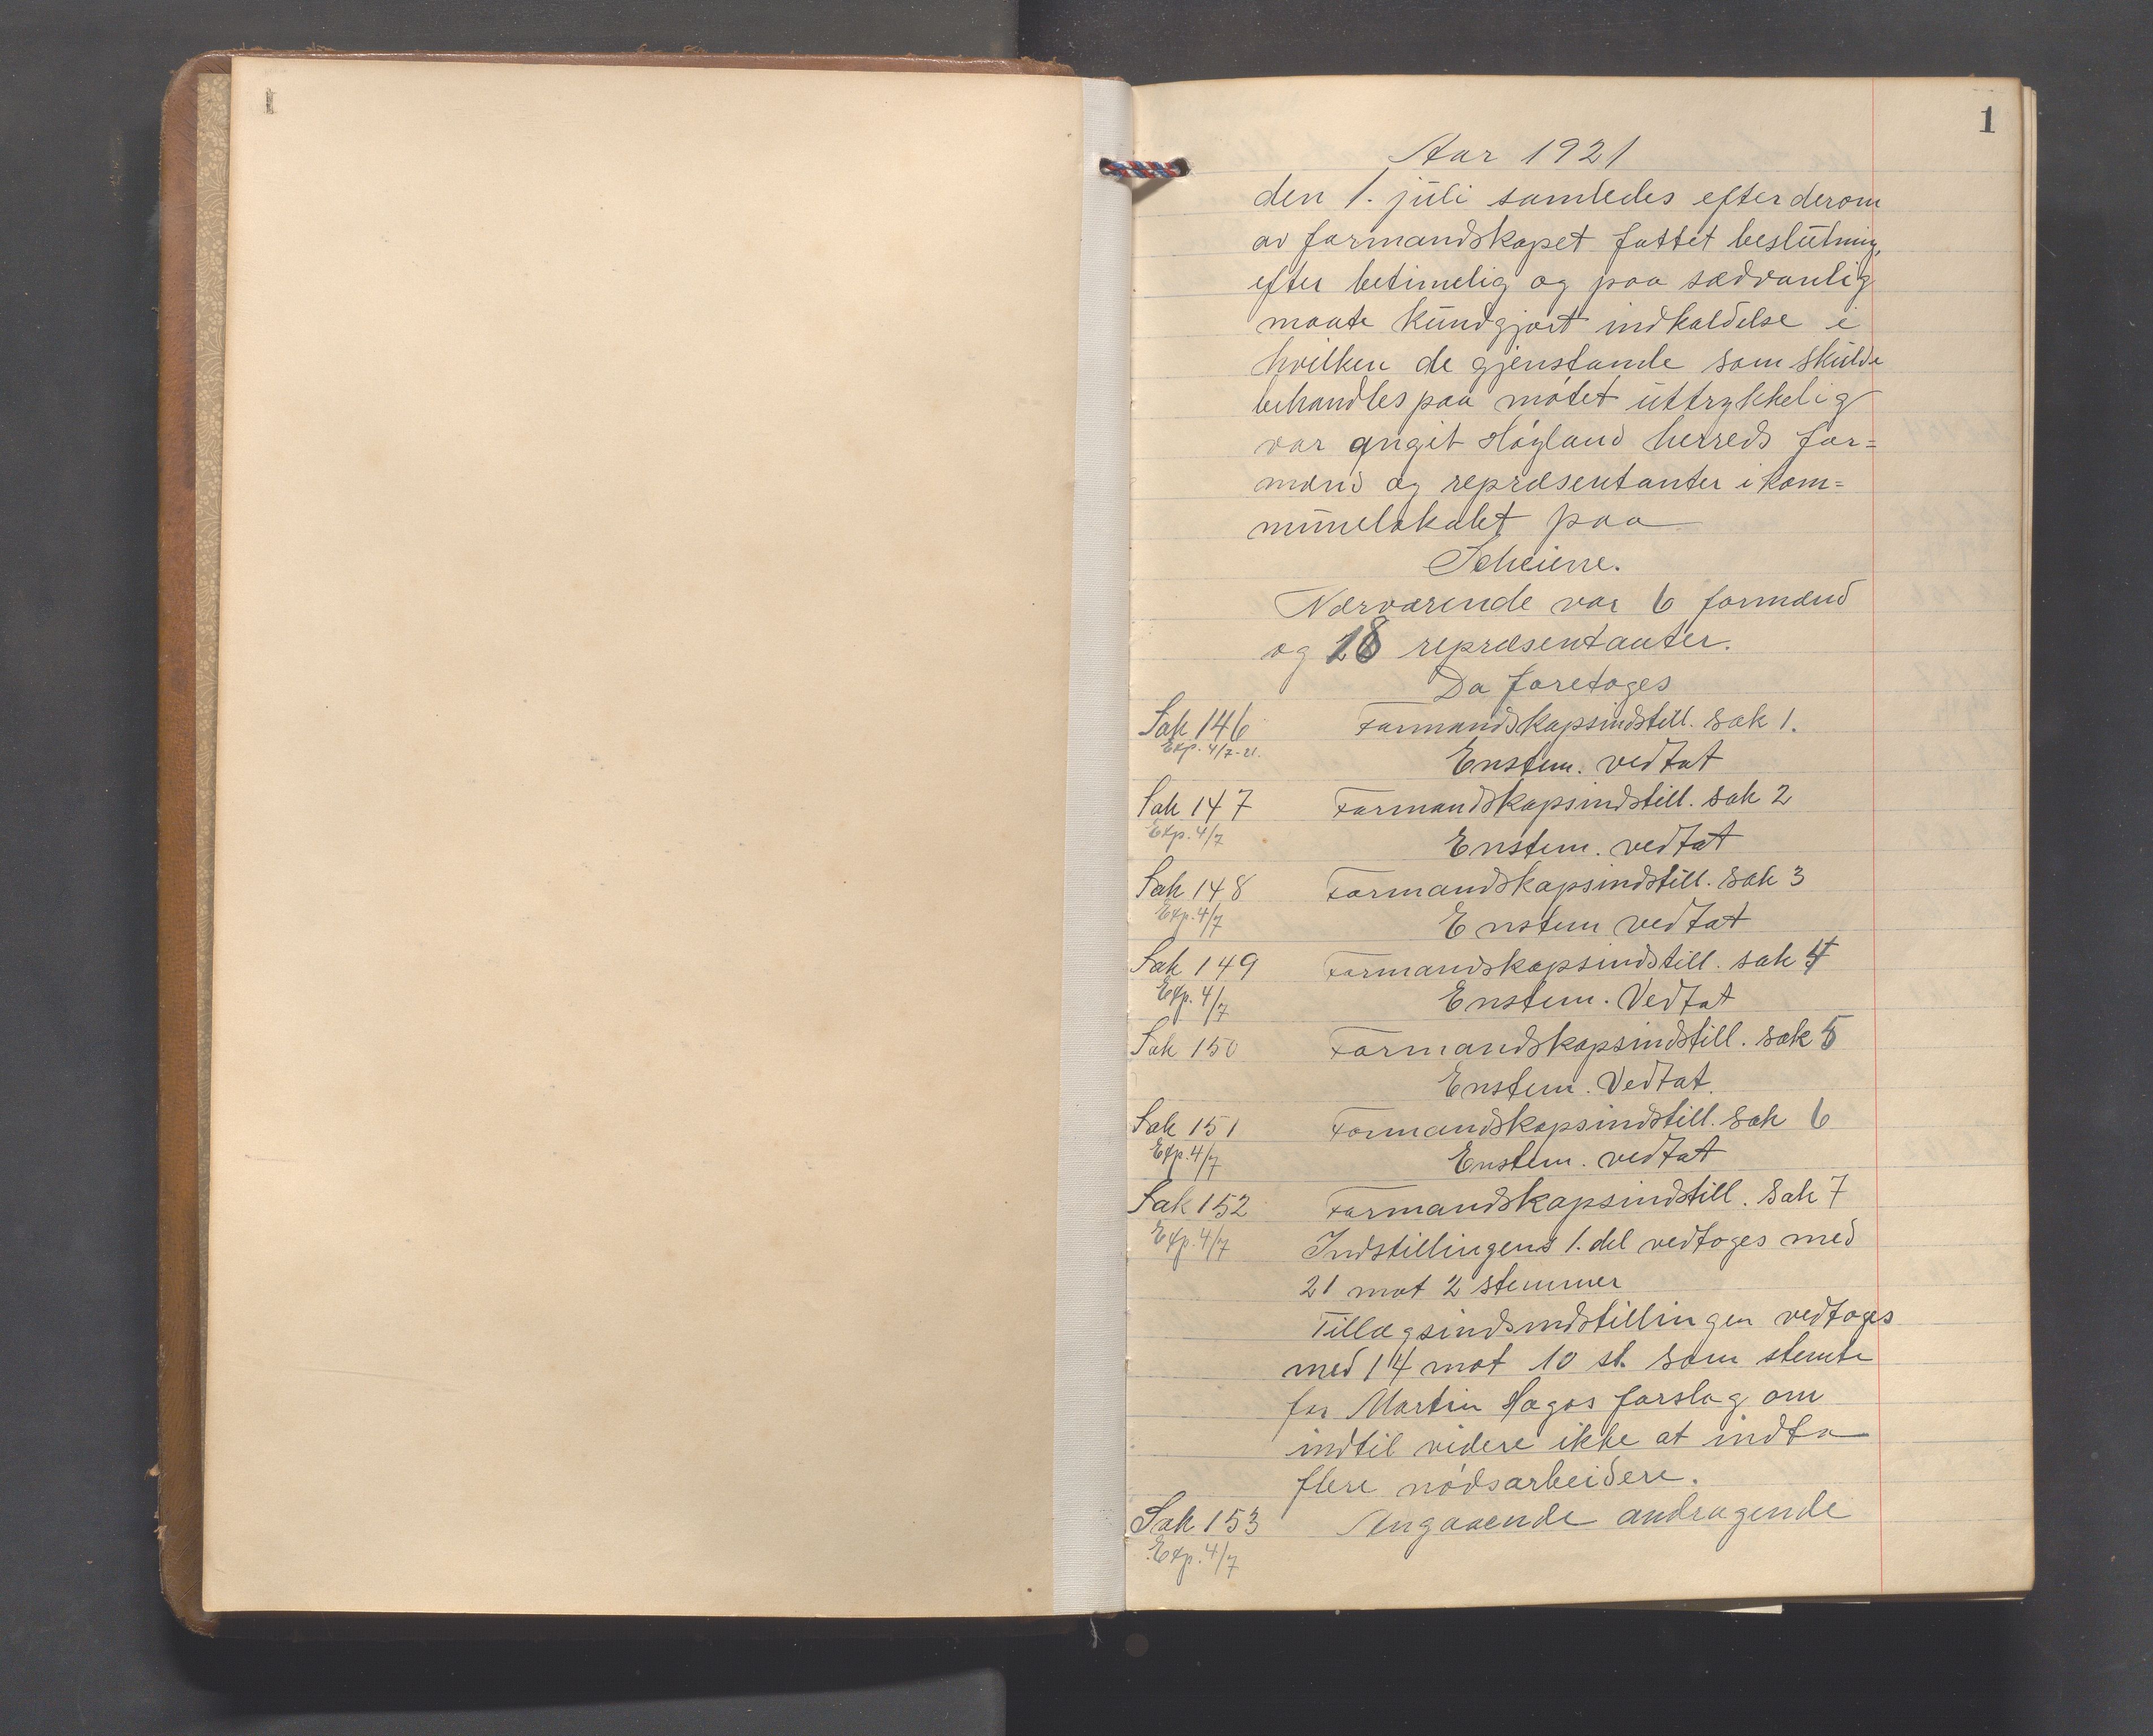 I
1
Aar 1921
den 1. juli samledes efter derom
av formandskapet fattet beslutning,
efter betimelig og paa sædvanlig
maate kundgjort indkaldelse i
hvilken de gjenstande som skulde
behandles paa møtet uttrykkelig
var angit Høyland herreds for=
mænd og repræsentanter i kom=
munelokalet paa
Scheiene.
Nærværende var 6 formænd
og 18 repræsentanter.
Da foretoges
Sak 146 Formandskapsindstill. sak 1.
Exp. 4/7-21.
Enstem. vedtat
Sak 147 Formandskapsindstill. sak 2
Exp. 4/7
Enstem. vedtat
Sak 148 Formandskapsindstill. sak 3
Exp. 4/7
Enstem vedtat
Sak 149 Formandskapsindstill. sak 4
Exp. 4/7
Enstem. Vedtat
Sak 150 Formandskapsindstill. sak 5
Enstem. Vedtat.
Sak 151 Formandskapsindstill. sak 6
Exp. 4/7
Enstem. vedtat
Sak 152 Formandskapsindstill. sak 7
Exp. 4/7
Indstillingens 1. del vedtoges med
21 mot 2 stemmer
Tillægsindsindstillingen vedtoges
med 14 mot 10 st. som stemte
for Martin Hagas forslag om
indtil videre ikke at indta
flere nødsarbeidere.
Sak 153 Angaaende andragende
Exp. 4/7